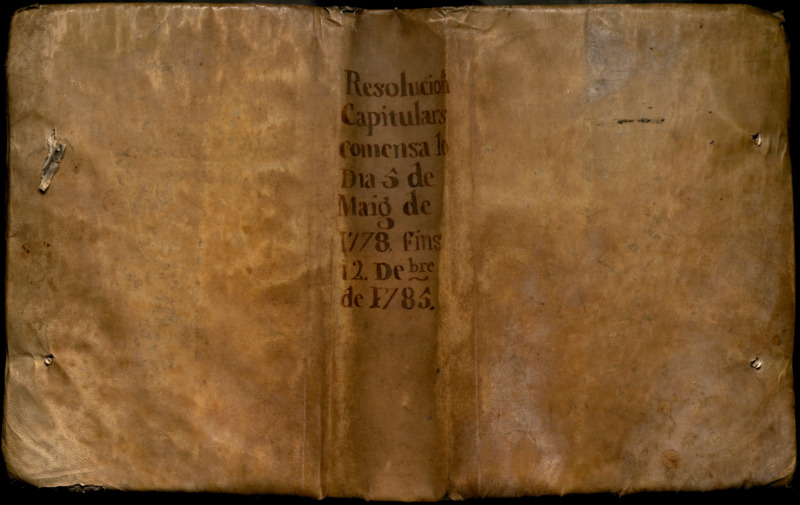 Resolucions
Capitulars
comensa lo
Dia 5 de
Maig de
1778. fins
12. Debre
de 1785.